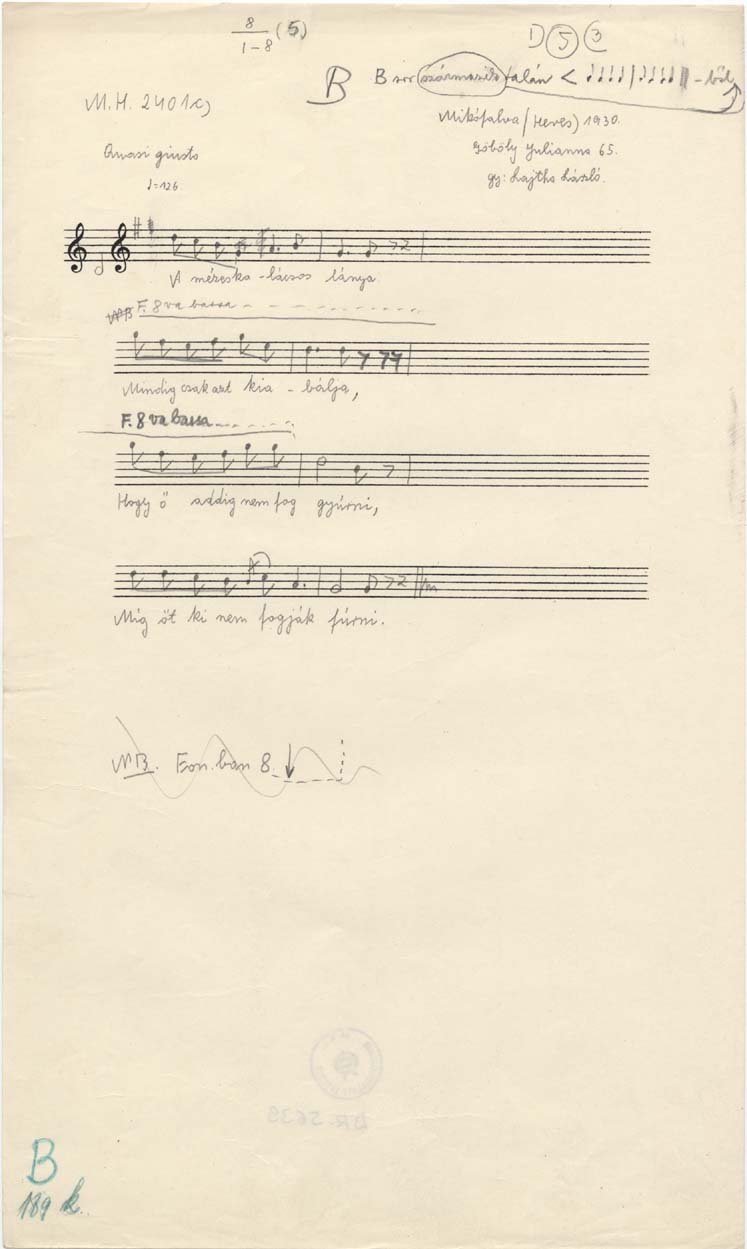 8
1-8 (5)
1) 5 3
B B sor származik talán < -ből
M.H. 2401c)
Mikófalva (Heves) 1930.
Quasi giusto
Göböly Julianna 65.
♩=126.
gy: Lajtha László.
A mézeska-lácsos lánya
NB F. 8va bassa
Mindig csak azt kia-bálja,
F. 8va bassa
Hogy ő addig nem fog gyúrni,
Míg őt ki nem fogják fúrni.
NB. Fon.ban 8
BR. 5638
B
189 k.